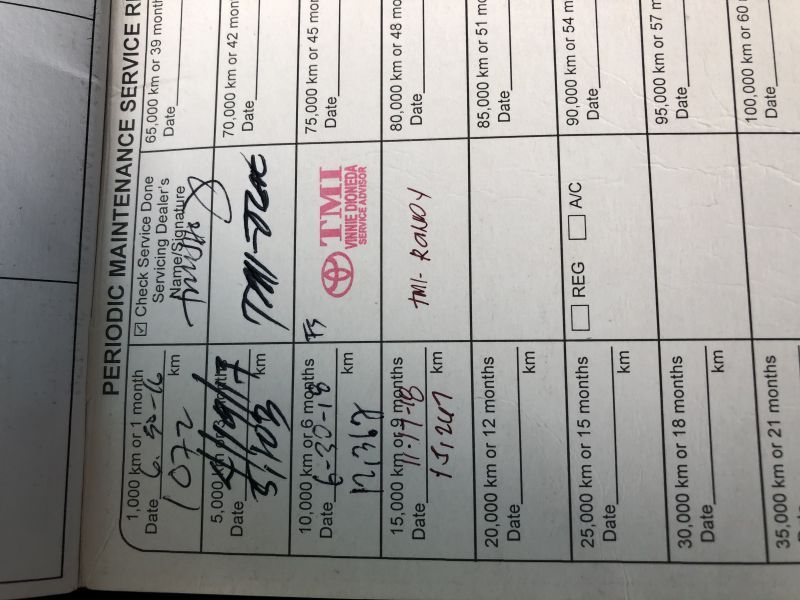 PERIODIC MAINTENANCE SERVICE
1,000 km or 1 month
Date 6-30-16
1072 km
☑ Check Service Done
Servicing Dealer's
Name/Signature
65,000 km or 39 month
Date
5,000 km or 3 months
Date
km
70,000 km or 42 mon
Date
10,000 km or 6 months
Date 6-30-18
12,362 km
TMI
VINNIE DIONEDA
SERVICE ADVISOR
75,000 km or 45 mor
Date
15,000 km or 9 months
Date 11-17-18
15,247 km
TMI- RANDY
80,000 km or 48 mo
Date
20,000 km or 12 months
Date
km
85,000 km or 51 m
Date
25,000 km or 15 months
Date
km
REG
A/C
90,000 km or 54 m
Date
30,000 km or 18 months
Date
km
95,000 km or 57 m
Date
35,000 km or 21 months
100,000 km or 60
Date